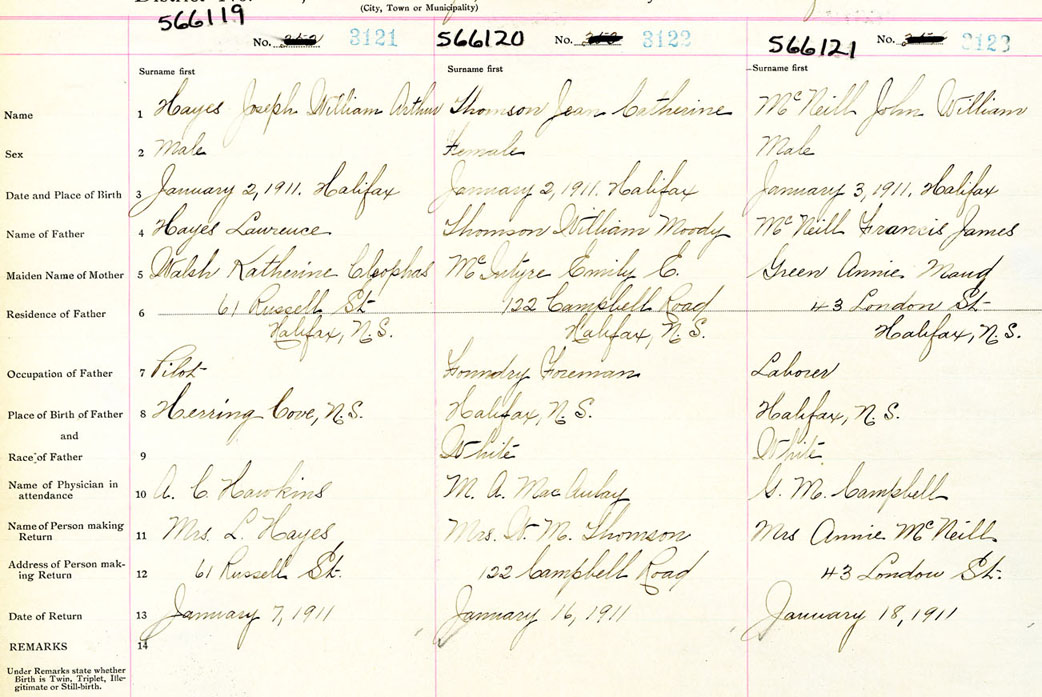 (City, Town or Municipality)
566119 No. 3121 566120 No. 3122 566121 No. 3123
Surname first Surname first Surname first
Name 1 Hayes Joseph William Arthur Thomson Jean Catherine McNeill John William
Sex 2 Male Female Male
Date and Place of Birth 3 January 2, 1911. Halifax January 2, 1911. Halifax January 3, 1911. Halifax
Name of Father 4 Hayes Lawrence Thomson William Moody McNeill Francis James
Maiden Name of Mother 5 Walsh Katherine Cleophas McIntyre Emily E. Green Annie Maud
Residence of Father 6 61 Russell St 122 Campbell Road 43 London St
Halifax, N.S. Halifax, N.S. Halifax, N.S.
Occupation of Father 7 Pilot Foundry Foreman Laborer
Place of Birth of Father 8 Herring Cove, N.S. Halifax, N.S. Halifax, N.S.
and
Race of Father 9 White White
Name of Physician in
attendance 10 A. C. Hawkins M. A. MacAulay G. M. Campbell
Name of Person making
Return 11 Mrs. L. Hayes Mrs. W. M. Thomson Mrs Annie McNeill
Address of Person mak-
ing Return 12 61 Russell St. 122 Campbell Road 43 London St.
Date of Return 13 January 7, 1911 January 16, 1911 January 18, 1911
REMARKS 14
Under Remarks state whether
Birth is Twin, Triplet, Ille-
gitimate or Still-birth.